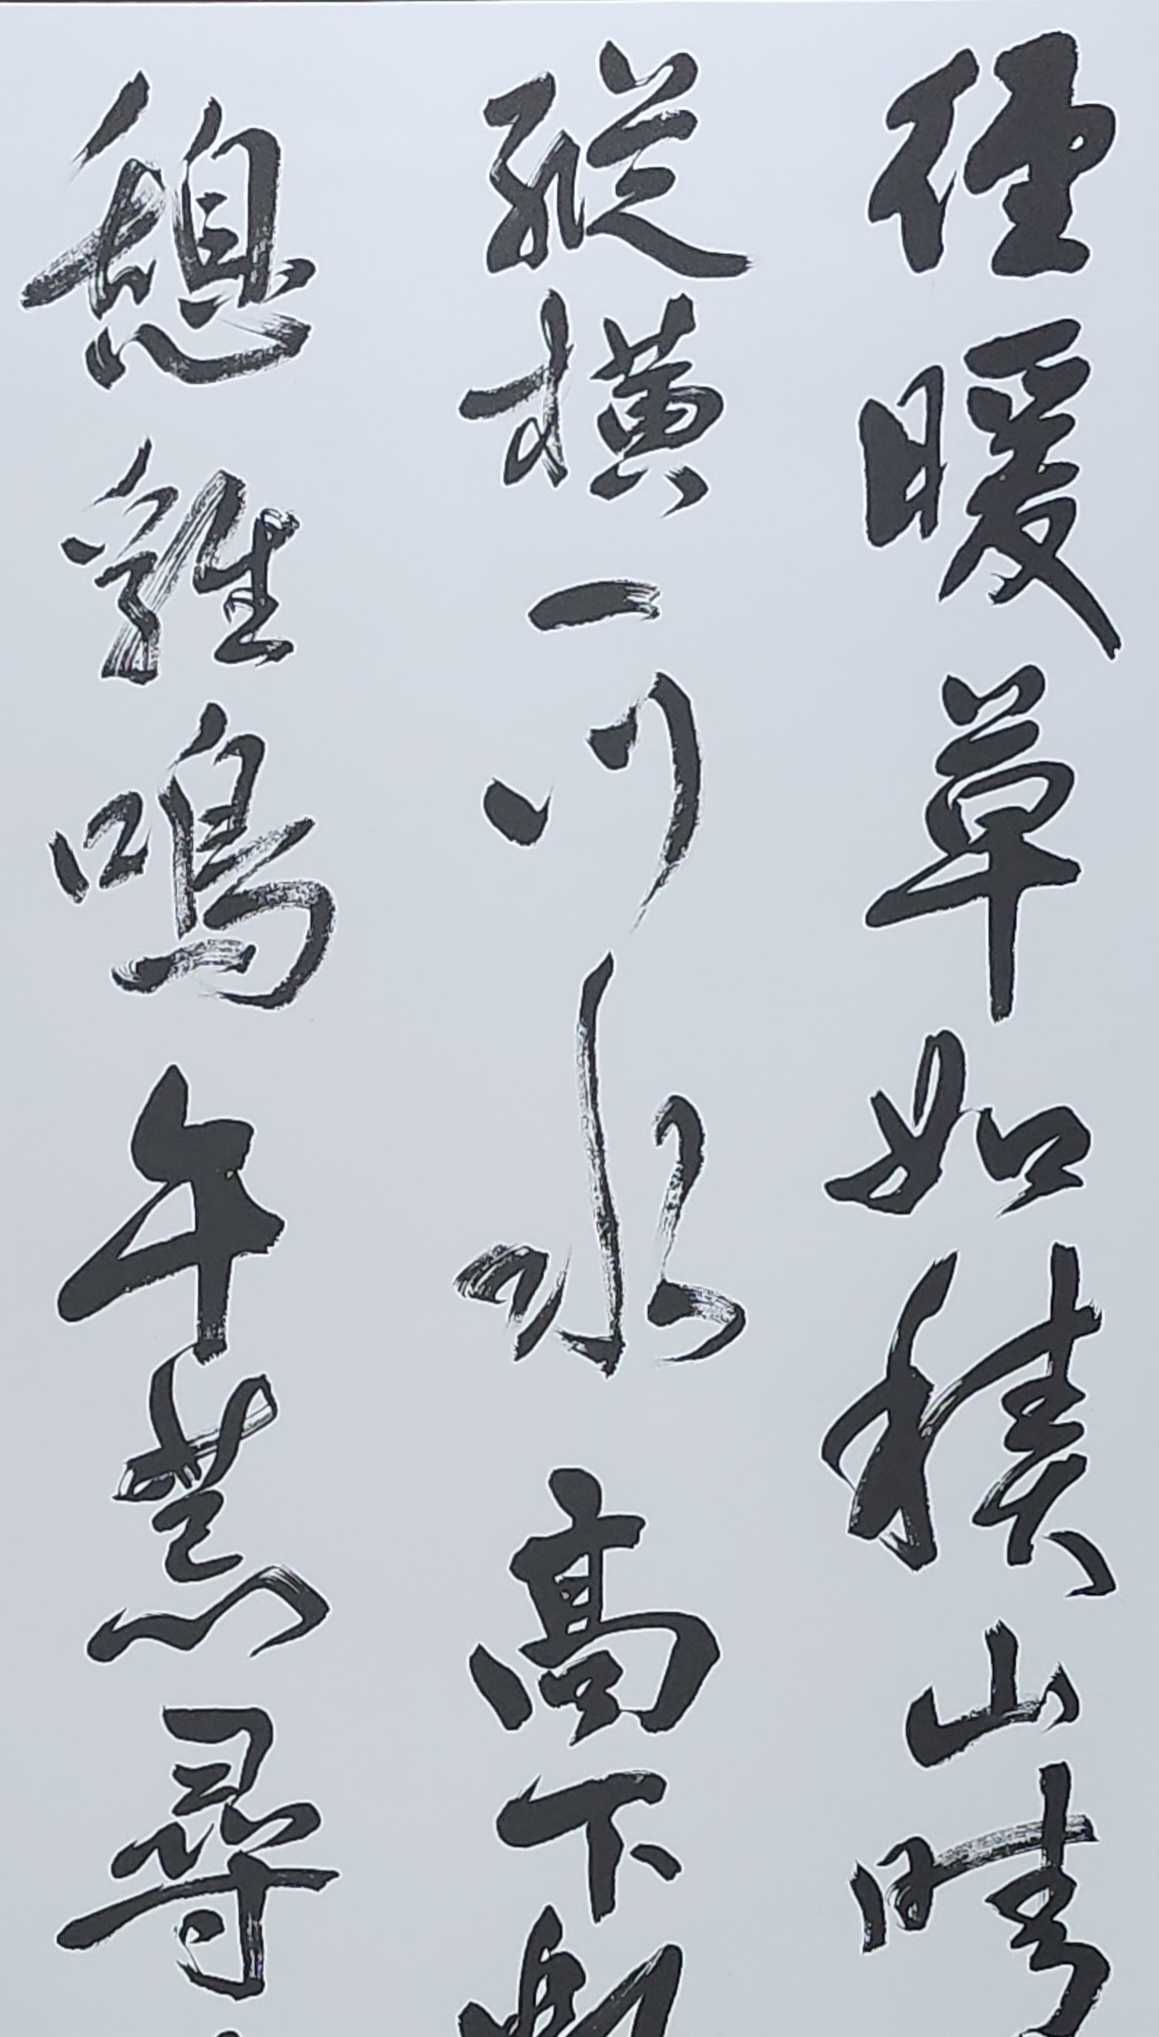 徑暖草如積山晴
縱橫一川水高下
憩雞鳴午荒尋